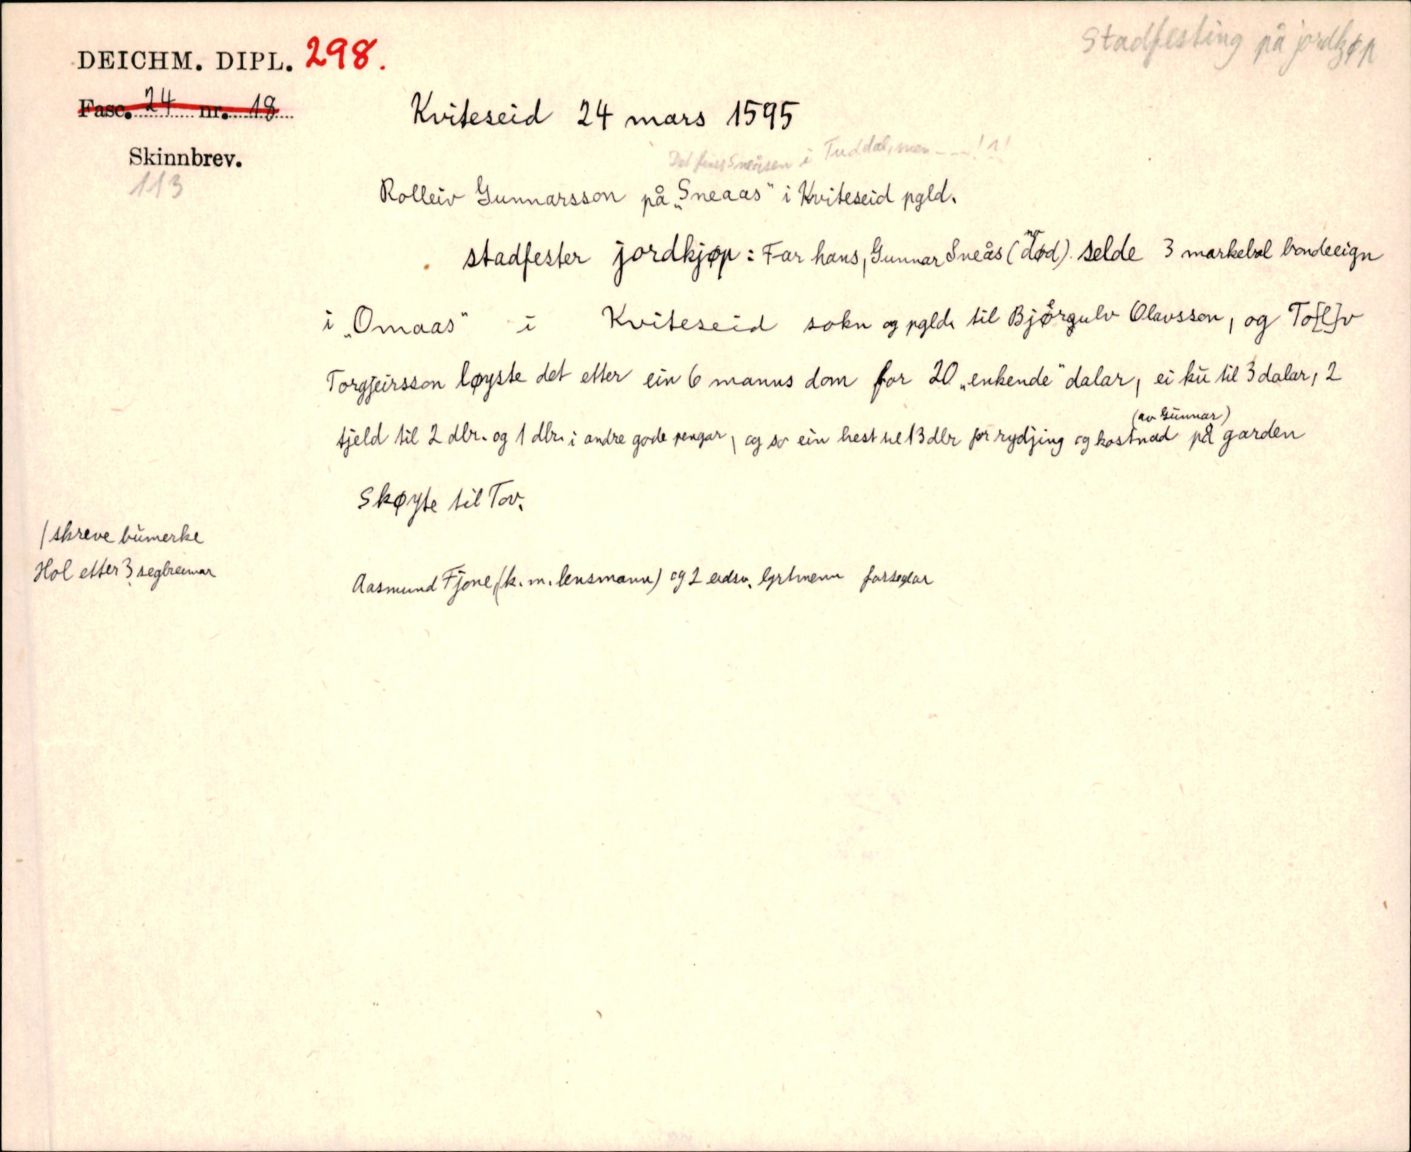 Stadfesting på jordkjøp
DEICHM. DIPL. 298.
Fasc. 24 nr. 18
Kviteseid 24 mars 1595
Skinnbrev.
113
Det finst Sneåsen i Tuddal, men ---!1!
Rolleiv Gunnarsson på „Sneaas" i Kviteseid pgld.
stadfester jordkjøp : Far hans, Gunnar Sneås (død) selde 3 markebol bondeeign
i „Omaas" i Kviteseid sokn og pgld. til Bjørgulv Olavsson, og To[l]v
Torgjeirsson løyste det etter ein 6 manns dom for 20 „enkende" dalar, ei ku til 3 dalar, 2
(av Gunnar)
tjeld til 2 dlr. og 1 dlr. i andre gode pengar, og so ein hest til 13 dlr for rydjing og kostnad på garden
Skøyte til Tov.
1 skreve bumerke
Hol etter 3 segl reimar
Aasmund Fjone (k. m. lensmann) og 2 eidsv. lgrtmenn forseglar